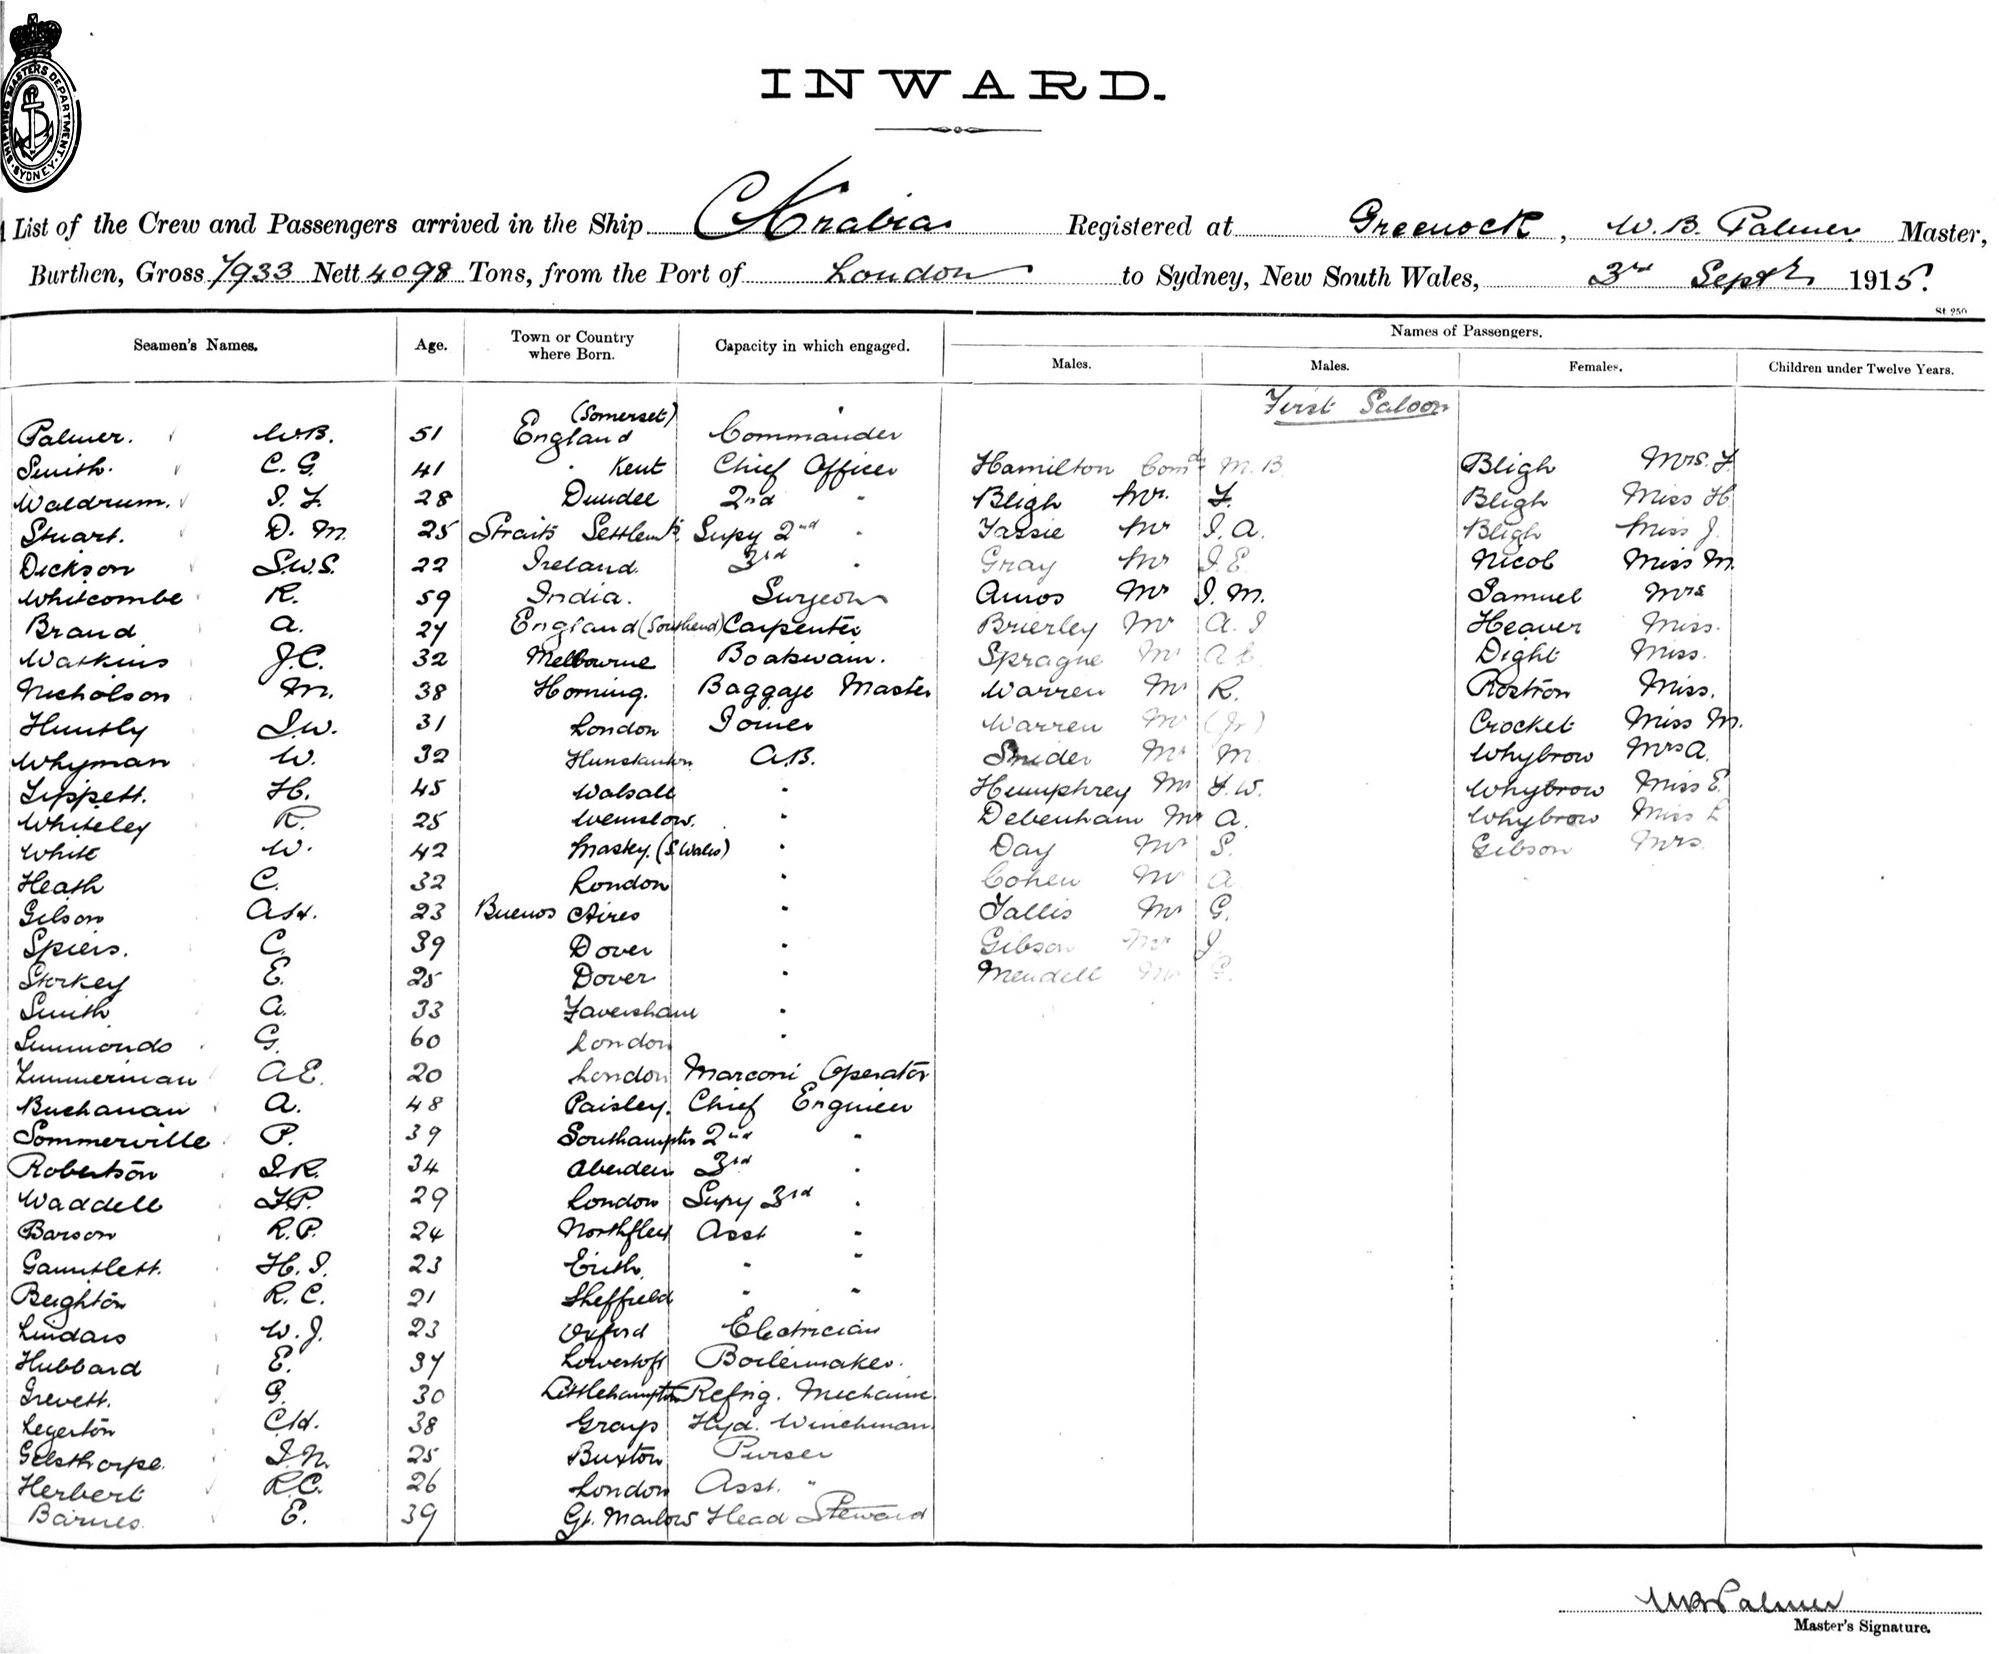 SHIPPING MASTERS DEPARTMENT. SYDNEY.
INWARD.
List of the Crew and Passengers arrived in the Ship Arabia Registered at Greenock, W. B. Palmer Master,
Burthen, Gross 7933 Nett 4098 Tons, from the Port of London to Sydney, New South Wales, 3rd Septr 1915.
St 250
Seamen's Names. Age. Town or Country where Born. Capacity in which engaged. Names of Passengers.
Males. Males. Females. Children under Twelve Years.
First Saloon
Palmer. W.B. 51 (Somerset) England Commander
Smith. C. G. 41 " Kent Chief Officer Hamilton Comdr M. B. Bligh Mrs. F.
Waldrum. J. F. 28 Dundee 2nd " Bligh Mr. F. Bligh Miss H
Stuart. D. M. 25 Straits Settlemts. Supy 2nd " Tassie Mr J. A. Bligh Miss J.
Dickson S.W.S. 22 Ireland. 3rd " Gray Mr J. E. Nicol Miss M.
Whitcombe R. 59 India. Surgeon Amos Mr J. M. Samuel Mrs
Brand A. 27 England (Southend) Carpenter Brierley Mr A. J Heaver Miss.
Watkins J.C. 32 Melbourne Boatswain. Sprague Mr Dight Miss.
Nicholson M. 38 Horning. Baggage Master Warren Mr R. Rostron Miss.
Huntly J.W. 31 London Joiner Warren Mr (Jr) Crocket Miss M.
Whyman W. 32 Hunstanton A.B. Snider Mr M. Whybrow Mrs A.
Tippett. H. 45 Walsall " Humphrey Mr F.W. Whybrow Miss E.
Whiteley R. 25 Wemslow. " Debenham Mr A. Whybrow Miss
White W. 42 (S. Wales) " Day Mr S. Gibson Mrs.
Heath C. 32 London " Cohen Mr A
Gilson A.H. 23 Buenos Aires " Tallis Mr G.
Spiers. C. 39 Dover " Gibson Mr J.
Storkey E. 25 Dover " Mendell Mr G.
Smith A. 33 Faversham "
Simmonds G. 60 London "
Zimmerman A.E. 20 London Marconi Operator
Buchanan A. 48 Paisley. Chief Engineer
Sommerville P. 39 Southampton 2nd "
Robertson J.R. 34 Aberdeen 3rd "
Waddell F.P. 29 London Supy 3rd "
Barson R.P. 24 Northfleet Asst "
Gauntlett. H. J. 23 Erith. " "
Beighton R. C. 21 Sheffield " "
Lindars W. J. 23 Oxford Electrician
Hubbard E. 37 Lowestoft Boilermaker.
Trevett. G. 30 Littlehampton Refrig. Mechanic.
Legerton C.H. 38 Grays Hyd. Winchman.
Gelsthorpe. J. N. 25 Buxton Purser
Herbert R.C. 26 London Asst. "
Barnes. E. 39 Gt. Marlow Head Steward
W B Palmer
Master's Signature.